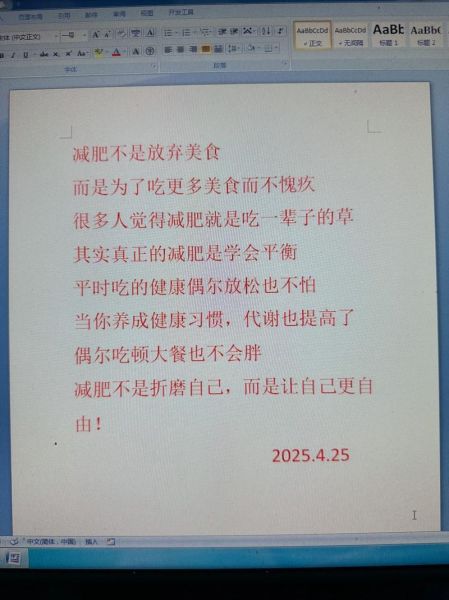 页面布局 引用 邮件 审阅 视图 开发工具
体 (中文正文) 一号
AaBbCcDd AaBbCcDd AaBb AaBbC
正文 无间隔 标题 1 标题 2
字体 段落
减肥不是放弃美食
而是为了吃更多美食而不愧疚
很多人觉得减肥就是吃一辈子的草
其实真正的减肥是学会平衡
平时吃的健康偶尔放松也不怕
当你养成健康习惯，代谢也提高了
偶尔吃顿大餐也不会胖
减肥不是折磨自己，而是让自己更自
由！
2025.4.25
中文(简体，中国) 插入